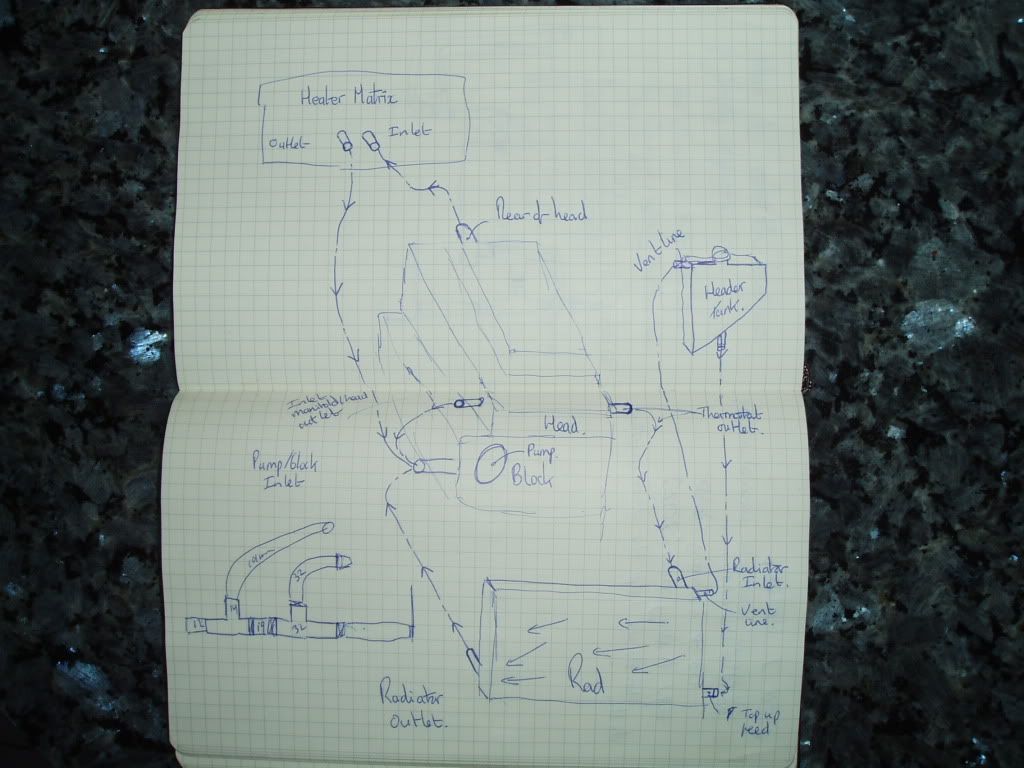 Heater Matrix
Outlet
Inlet
Rear of head
Vent line
Header
Tank.
Inlet
manifold/head
outlet
Thermostat
outlet.
Head.
Pump.
Block
Pump/block
Inlet
19mm
32
19
19
32
Radiator
Inlet.
Vent
line.
Rad
Radiator
Outlet.
Top up
feed